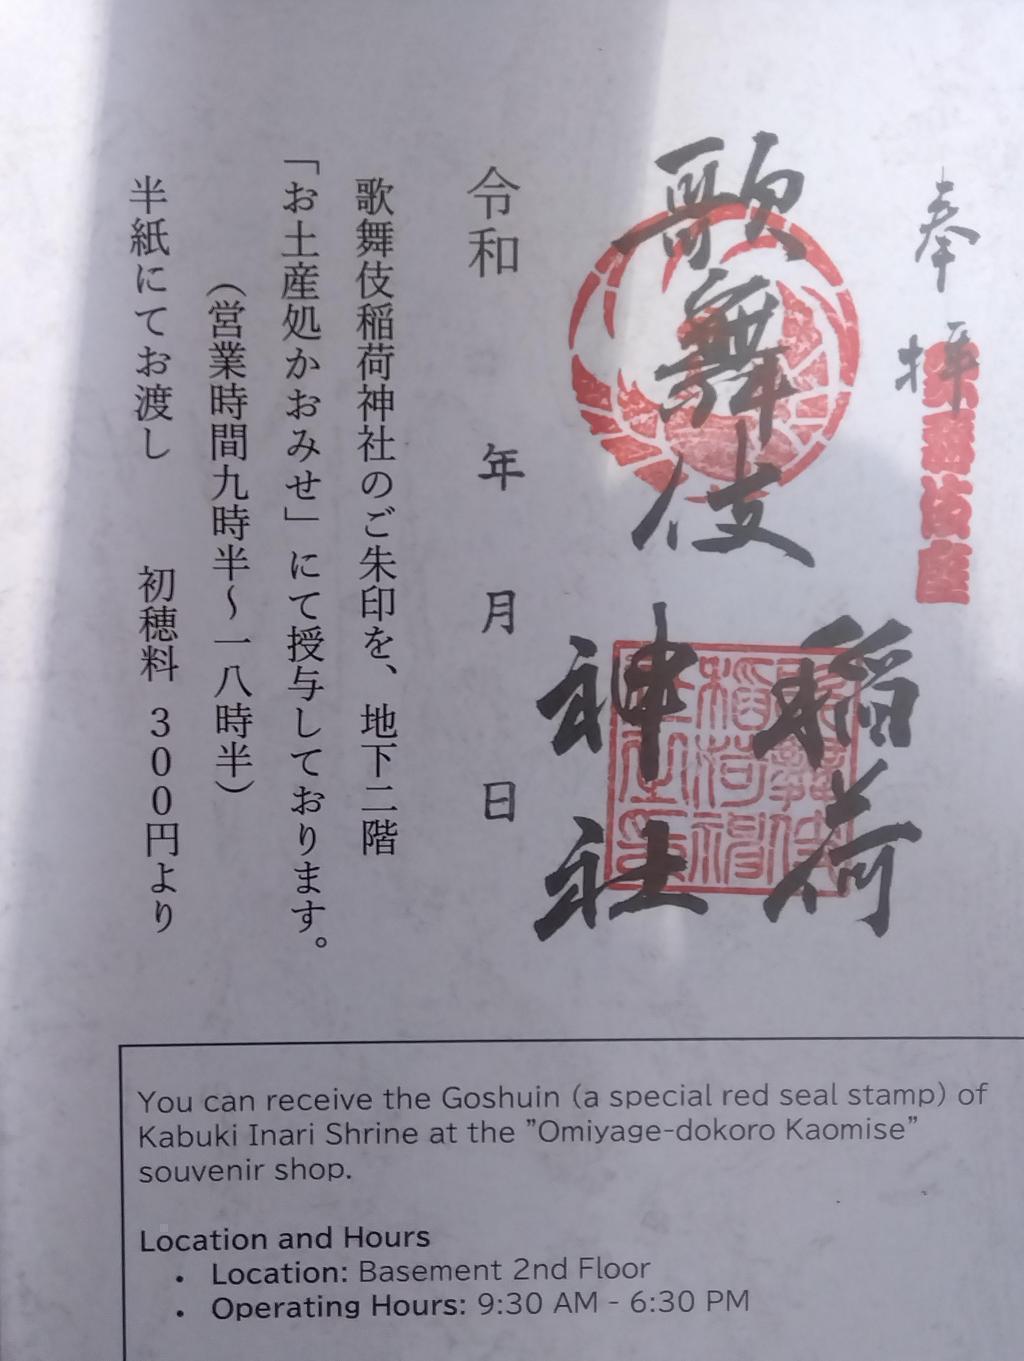 奉拝
歌舞伎座
歌舞伎
稲荷
神社
令和 年 月 日
歌舞伎稲荷神社のご朱印を、地下二階
「お土産処かおみせ」にて授与しております。
(営業時間九時半～一八時半)
半紙にてお渡し 初穂料 300円より
You can receive the Goshuin (a special red seal stamp) of
Kabuki Inari Shrine at the "Omiyage-dokoro Kaomise"
souvenir shop.
Location and Hours
• Location: Basement 2nd Floor
• Operating Hours: 9:30 AM - 6:30 PM